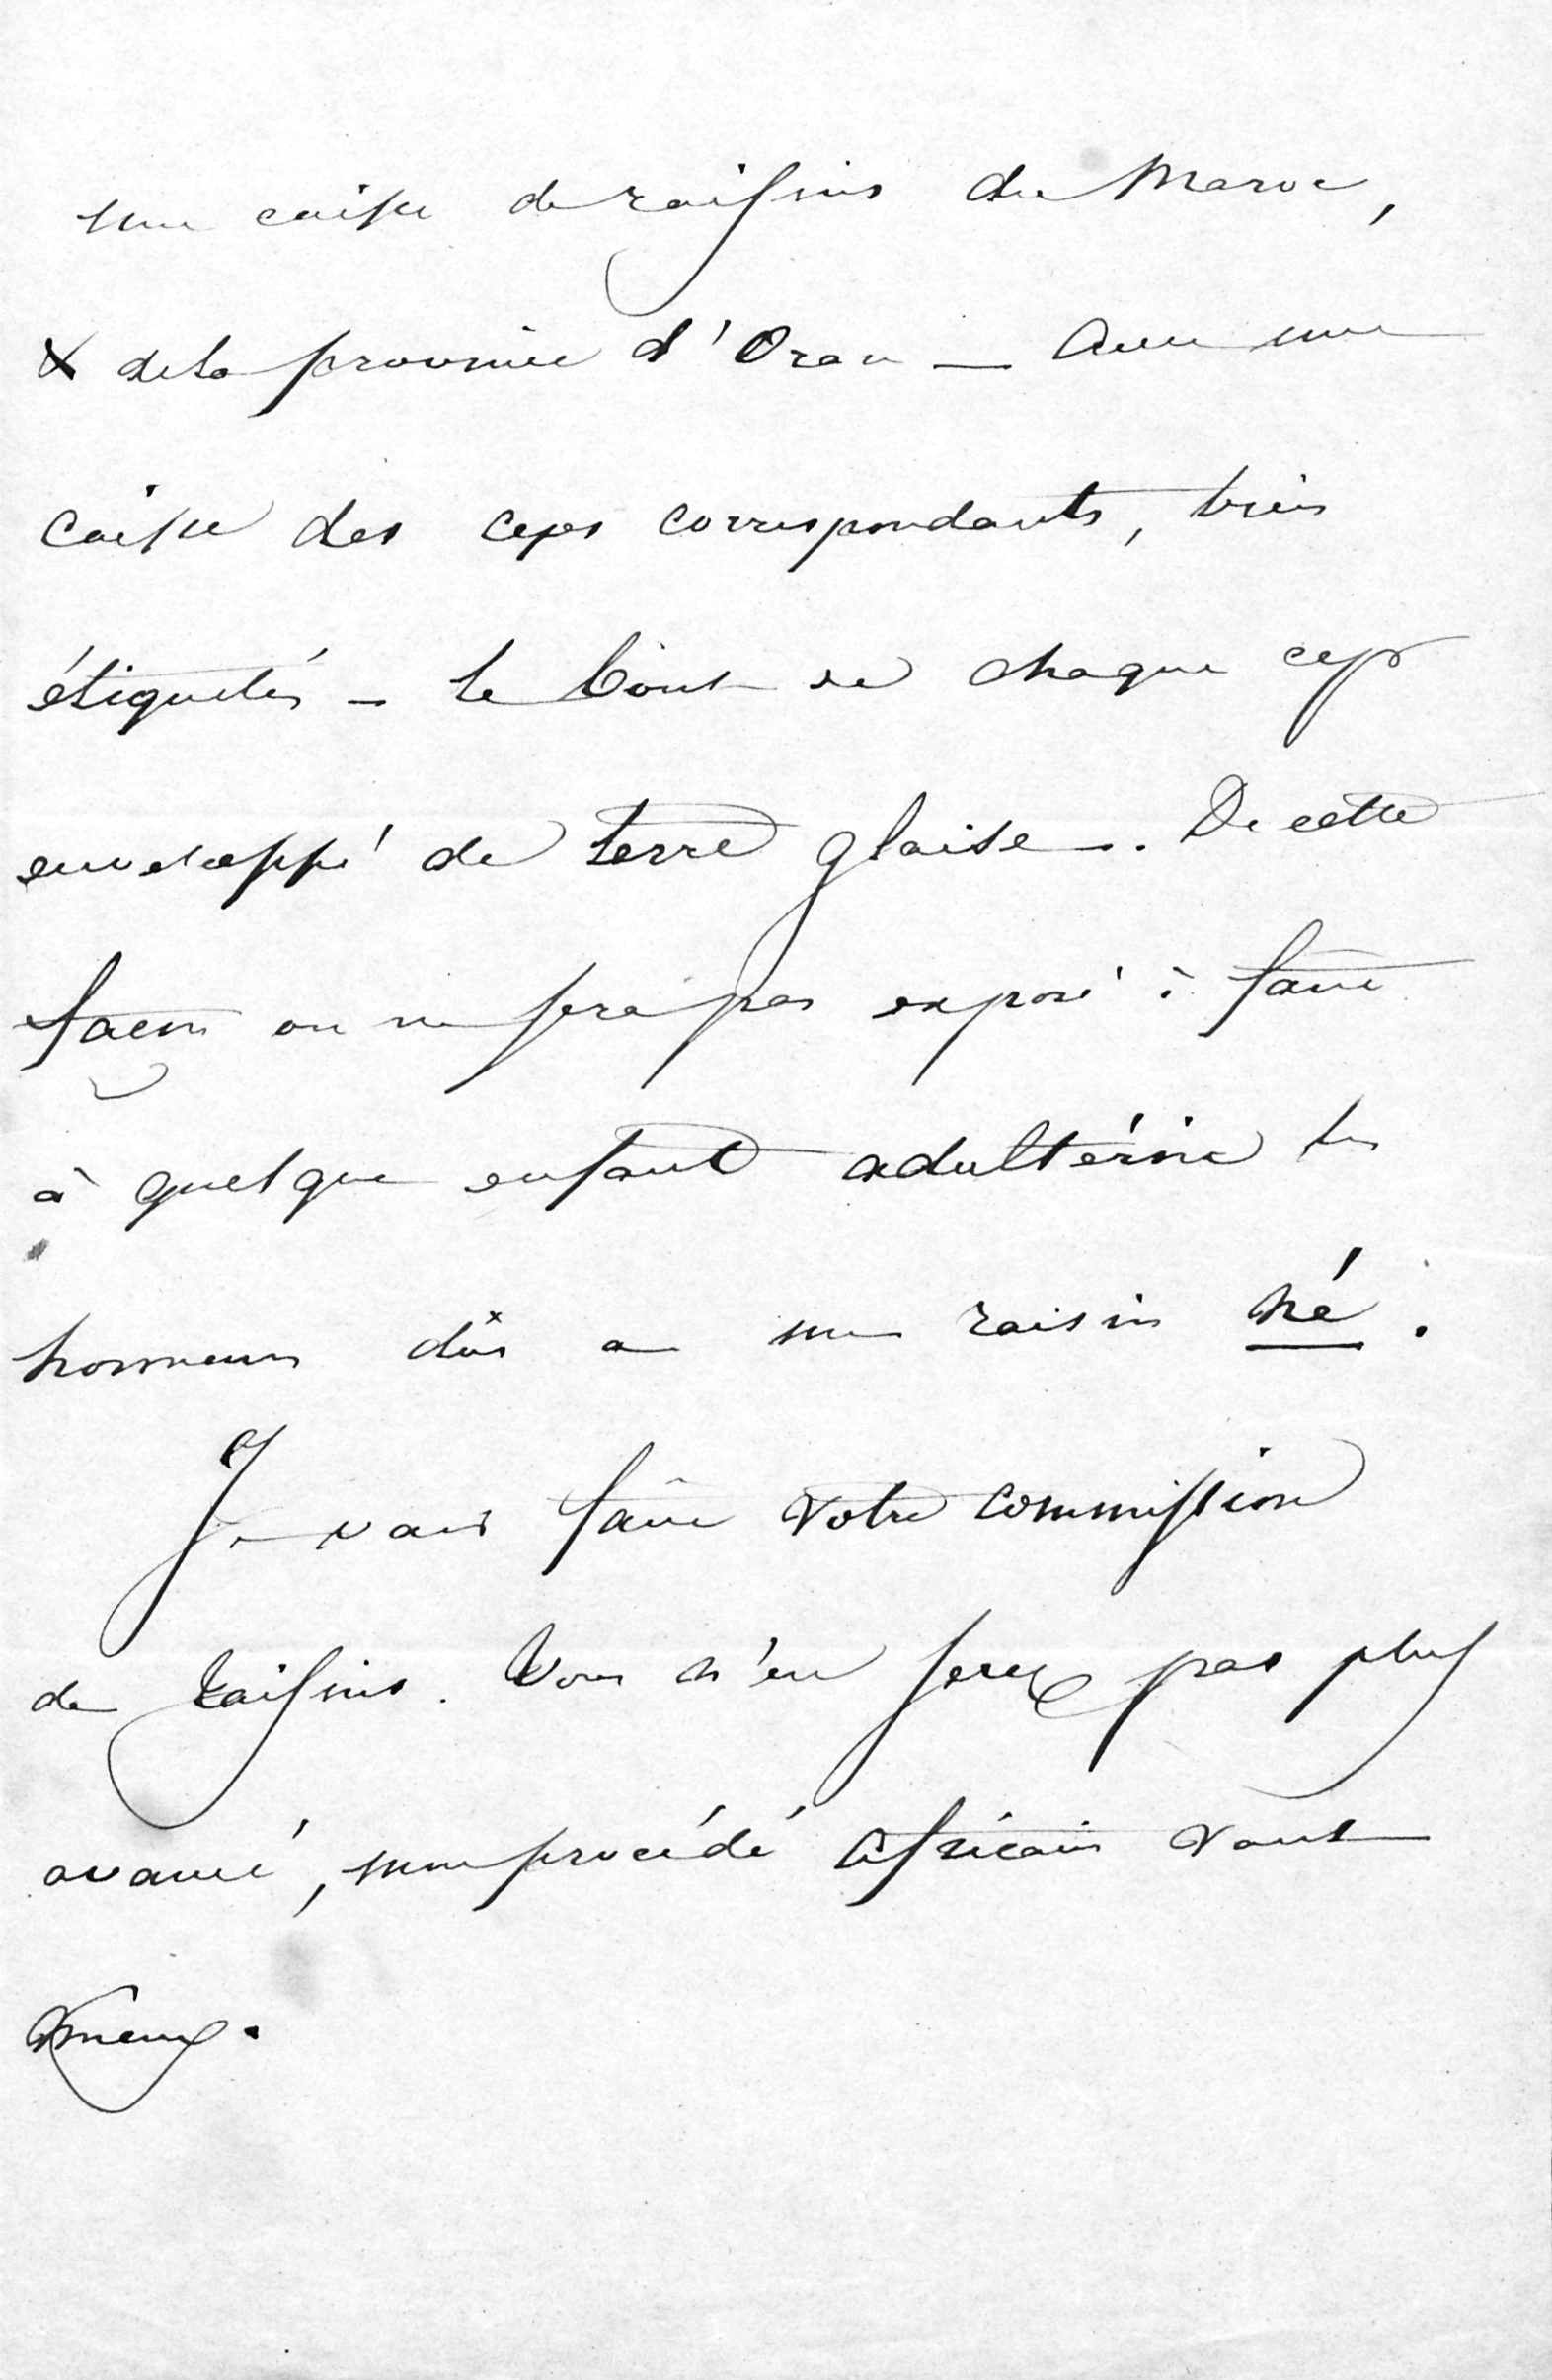 une caisse de raisins du Maroc,
& de la province d'Oran — Avec une
caisse des ceps correspondants, bien
étiquetés — le bout de chaque cep
enveloppé de terre glaise —. De cette
façon on ne sera pas exposé à faire
à quelque enfant adultérin les
honneurs dûs a un raisin né.
Je vais faire votre commission
de raisins. Vous n'en serez pas plus
avancé, mon procédé Africain vaut
mieux.